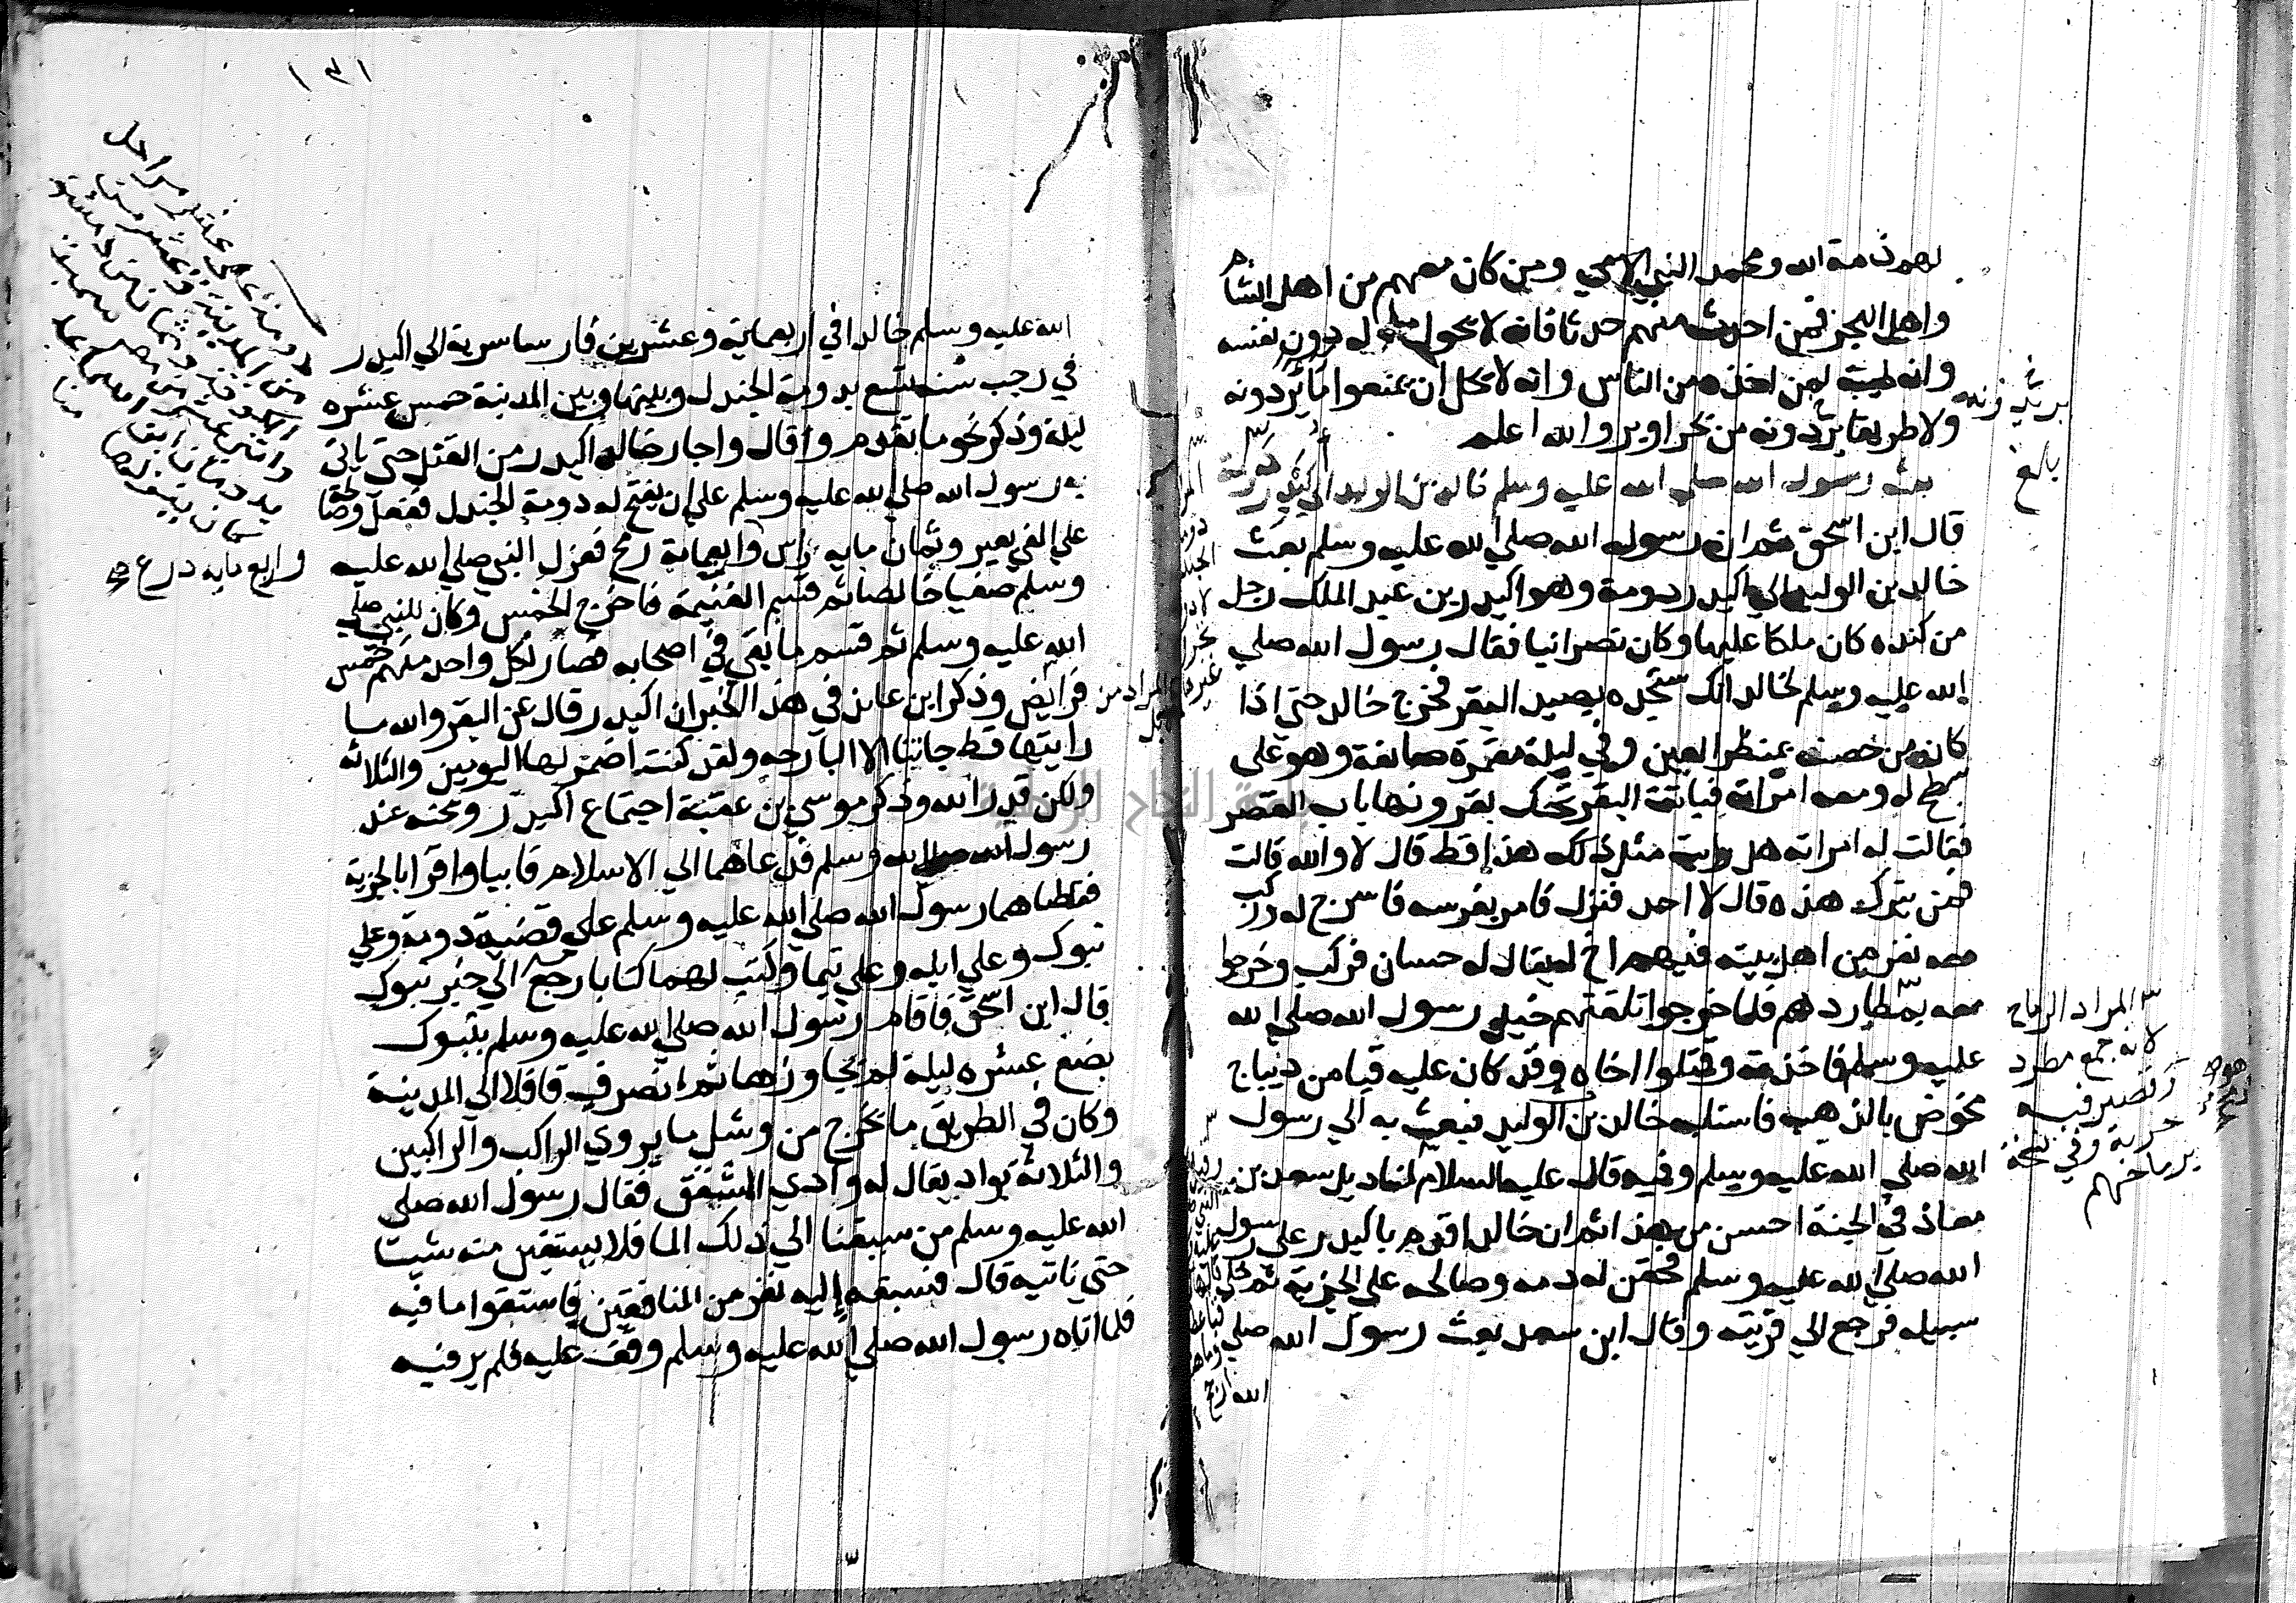 لهم ذمة الله ومحمد النبي الامي ومن كان معهم من اهل الشام
واهل البحر فمن احدث منهم حدثا فانه لا يحول ماله دون نفسه
وانه طيبة لمن اخذه من الناس وانه لا يحل ان يمنعوا ما يردونه
ولا طريقا يردونه من بحر او بر والله اعلم
بعث رسول الله صلي الله عليه وسلم خالد بن الوليد الي اكيدر دومة
قال ابن اسحق ثم ان رسول الله صلي الله عليه وسلم بعث
خالد بن الوليد الي اكيدر دومة وهو اكيدر بن عبد الملك رجل
من كنده كان ملكا عليها وكان نصرانيا فقال رسول الله صلي
الله عليه وسلم لخالد انك ستجده يصيد البقر فخرج خالد حتي اذا
كان من حصنه بمنظر العين وفي ليلة مقمرة صايفة وهو علي
سطح له ومعه امراته فباتت البقر تحك بقرونها باب القصر
فقالت له امراته هل رايت مثل ذلك هذا قط قال لا والله قالت
فمن يترك هذه قال لا احد فنزل فامر بفرسه فاسرج له وركب
معه نفر من اهل بيته فيهم اخ له يقال له حسان فركب وخرجوا
معه بمطاردهم فلما خرجوا تلقتهم خيل رسول الله صلي الله
عليه وسلم فاخذته وقتلوا اخاه وقد كان عليه قبا من ديباج
مخوص بالذهب فاستلبه خالد بن الوليد فبعث به الي رسول
الله صلي الله عليه وسلم وفيه قال عليه السلام لمناديل سعد بن
معاذ في الجنة احسن من هذا ثم ان خالدا قدم باكيدر علي رسول
الله صلي الله عليه وسلم فحقن له دمه وصالحه علي الجزية ثم خلي
سبيله فرجع الي قريته وقال ابن سعد بعث رسول الله صلي
بلغ
المراد الرماح
لانه جمع مطرد
قصير فيه
حربة وفي نسخة
برماحهم
الله عليه وسلم خالدا في اربعماية وعشرين فارسا سرية الي اكيدر
في رجب سنه تسع بدومة الجندل وبينها وبين المدينة خمس عشره
ليلة وذكر نحو ما تقدم وقال واجار خالد اكيدر من القتل حتي ياتي
به رسول الله صلي الله عليه وسلم علي ان يفتح له دومة الجندل ففعل وصالحه
علي الفي بعير وثمان مايه راس واربعماية رمح فعزل النبي صلي الله عليه
واربع مايه درع صح
وسلم صفيا خالصا ثم قسم الغنيمة فاخرج الخمس وكان للنبي صلي
الله عليه وسلم ثم قسم ما بقي في اصحابه فصار لكل واحد منهم خمس
فرايض وذكر ابن عايذ في هذا الخبر ان اكيدر قال عن البقر والله ما
رايتها قط جاتنا الا البارحه ولقد كنت اضمر لها اليومين والثلاثه
ولكن قدر الله وذكر موسي بن عقبة اجتماع اكيدر ويحنه عند
رسول الله صلي الله وسلم فدعاهما الي الاسلام فابيا واقرا بالجزية
فقاضاهما رسول الله صلي الله عليه وسلم علي قضية دومة وعلي
تبوك وعلي ايله وعلي تيما وكتب لهما كتابا رجع الي خبر تبوك
قال ابن اسحق فاقام رسول الله صلي الله عليه وسلم بتبوك
بضع عشره ليلة لم يجاوزها ثم انصرف قافلا الي المدينة
وكان في الطريق ما يخرج من وشل ما يروي الراكب والراكبين
والثلاثة بواد يقال له وادي المشقق فقال رسول الله صلي
الله عليه وسلم من سبقنا الي ذلك الما فلا يستقين منه شيا
حتي ناتيه قال فسبقه اليه نفر من المنافقين فاستقوا ما فيه
فلما اتاه رسول الله صلي الله عليه وسلم وقف عليه فلم ير فيه